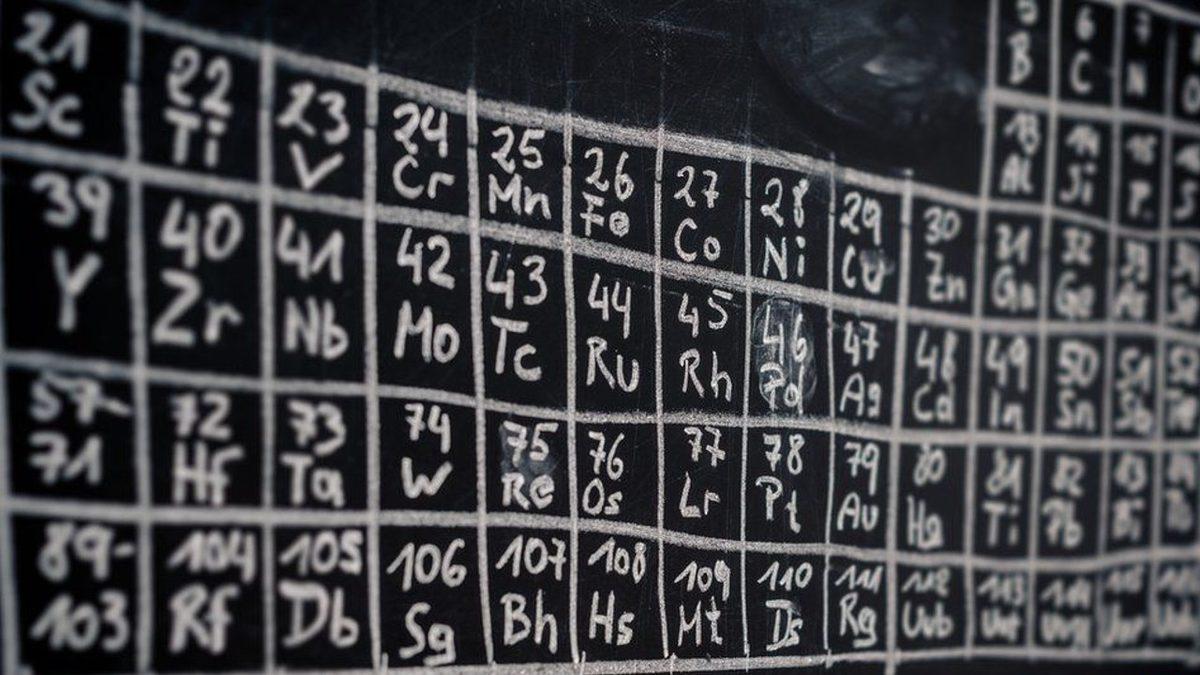 5 6 7
B C N
13 14 15
Al Si P S
21 22 23 24 25 26 27 28 29 30 31 32 33
Sc Ti V Cr Mn Fe Co Ni Cu Zn Ga Ge As Se
39 40 41 42 43 44 45 46 47 48 49 50 51 52
Y Zr Nb Mo Tc Ru Rh Pd Ag Cd In Sn Sb Te
57- 72 73 74 75 76 77 78 79 80 81 82 83
71 Hf Ta W Re Os Lr Pt Au Hg Ti Pb Bi
89- 104 105 106 107 108 109 110 111 112 113 114 115
103 Rf Db Sg Bh Hs Mt Ds Rg Uub Uut Uuq